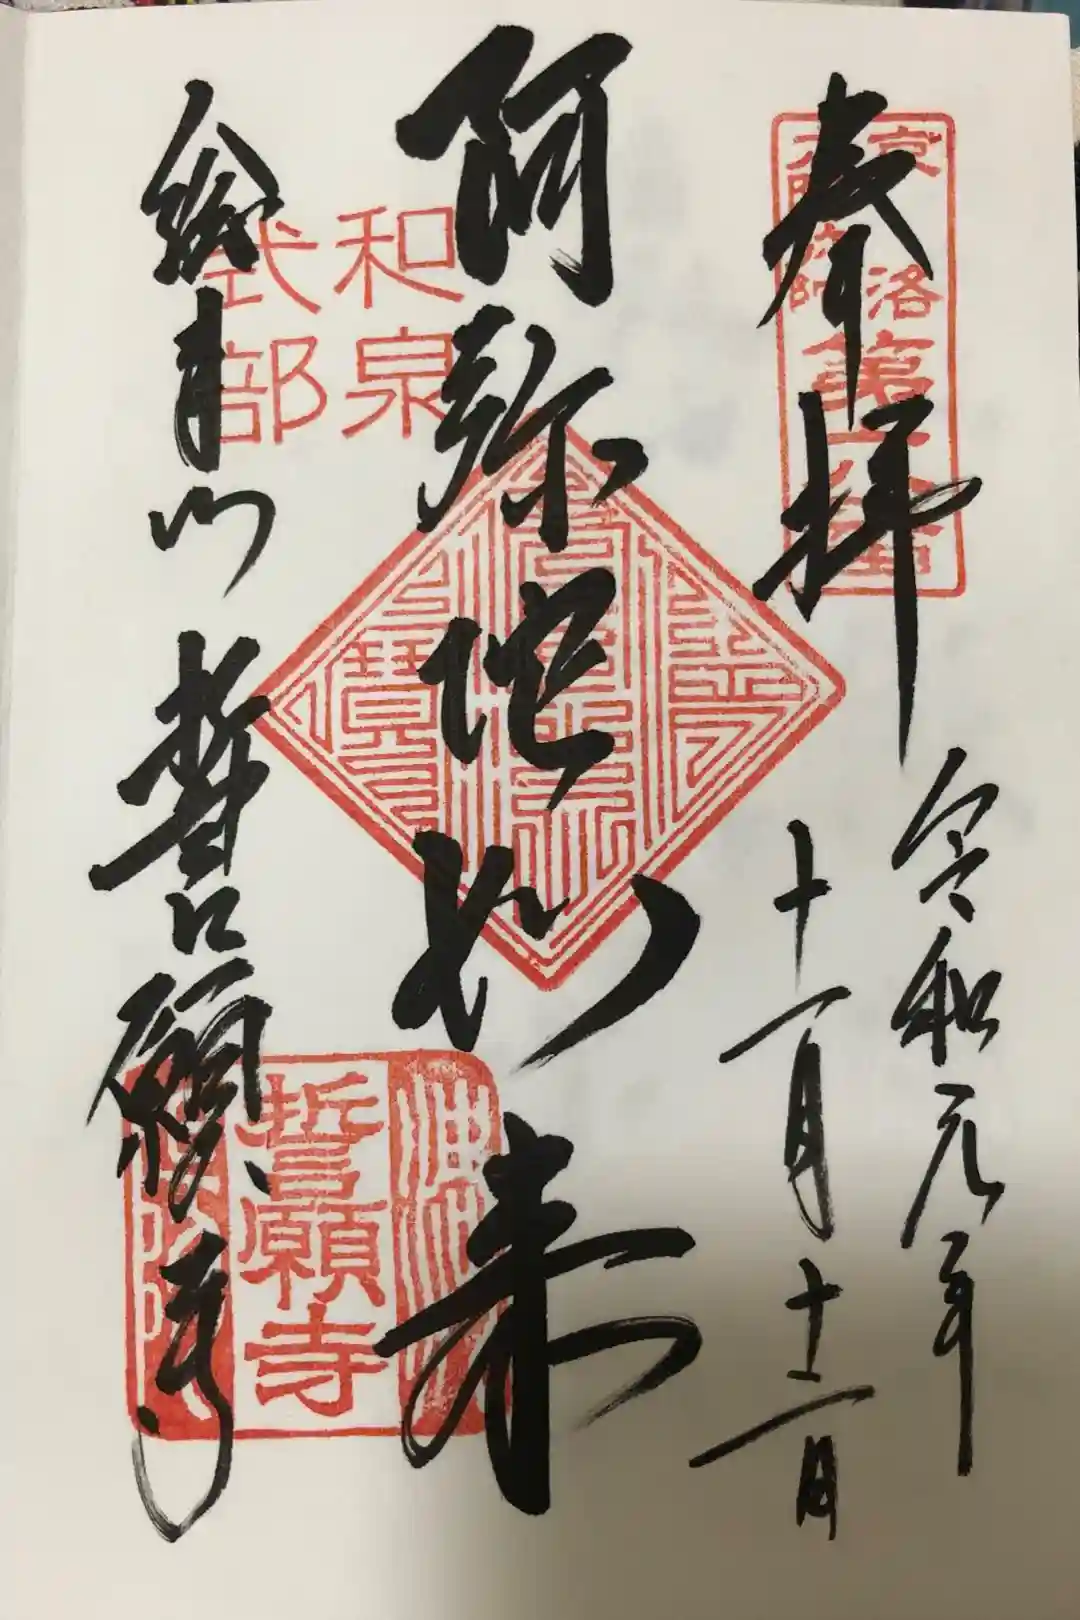 奉拝
令和元年
十一月十二日
阿弥陀如来
和泉
式部
総本山 誓願寺
誓願寺